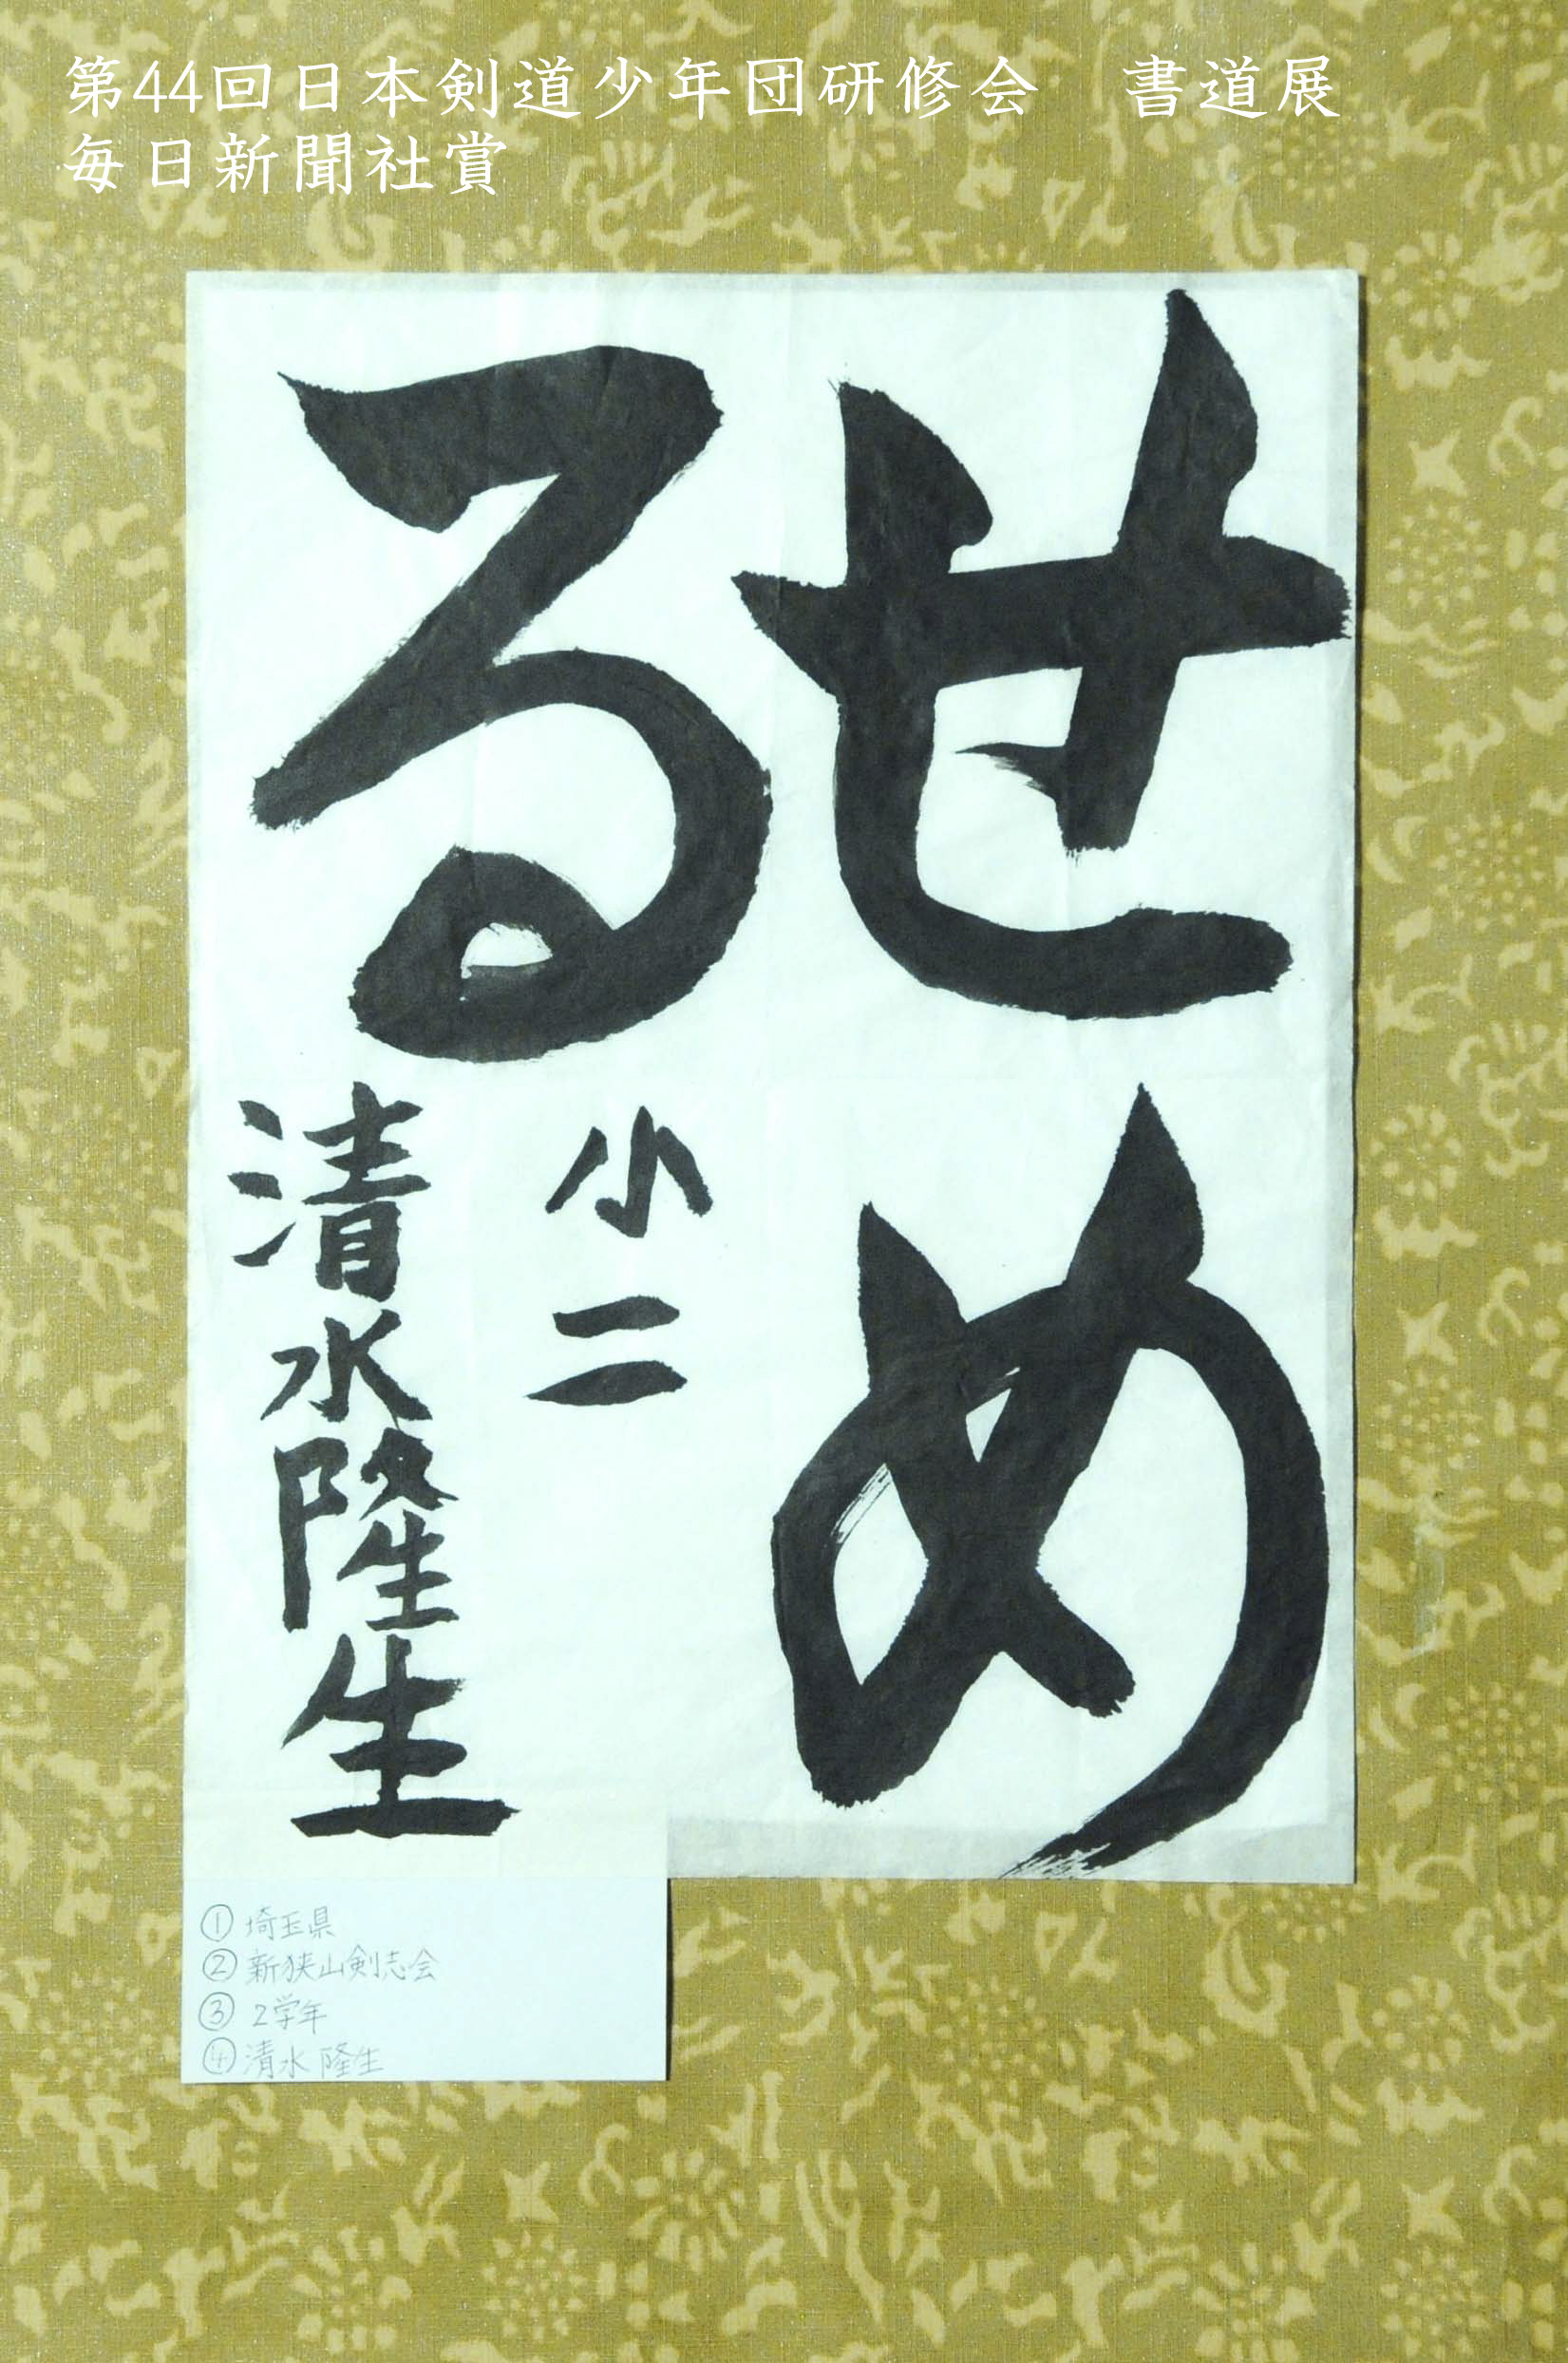 第44回日本剣道少年団研修会　書道展
毎日新聞社賞
せめ
る
小二
清水隆生
① 埼玉県
② 新狭山剣志会
③ 2学年
④ 清水 隆生